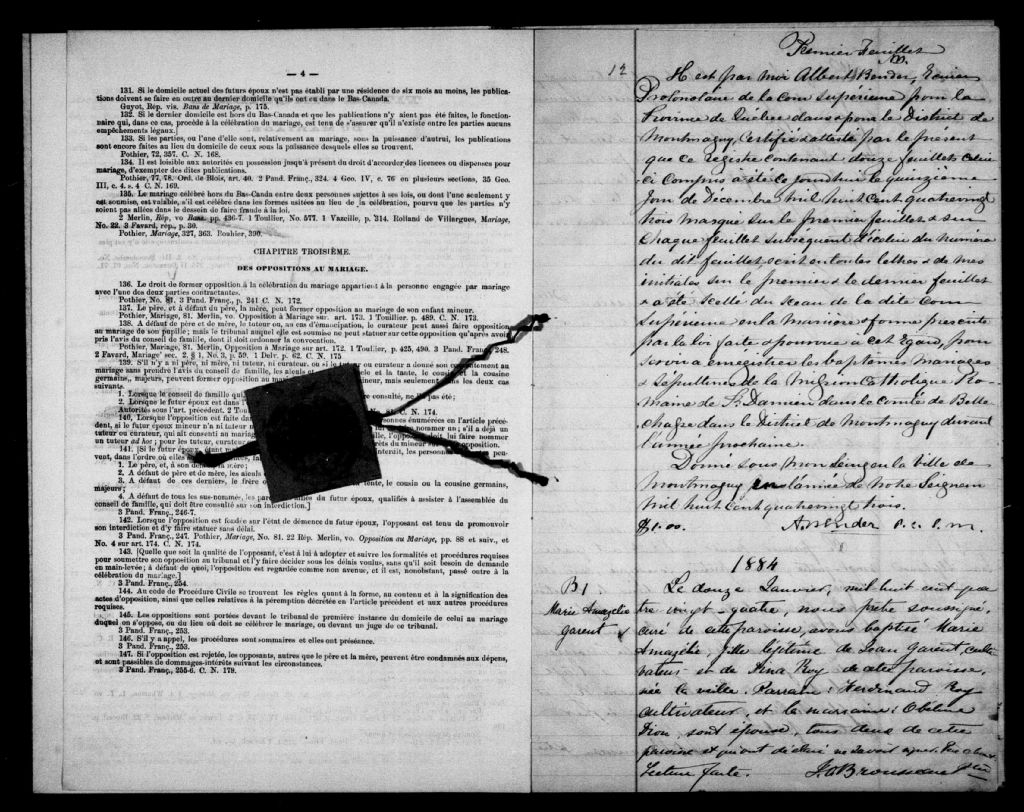 — 4 —
131. Si le domicile actuel des futurs époux n'est pas établi par une résidence de six mois au moins, les publica-
tions doivent se faire en outre au dernier domicile qu'ils ont eu dans le Bas-Canada.
Guyot, Rép. vis. Bans de Mariage, p. 175.
132. Si le dernier domicile est hors du Bas-Canada et que les publications n'y aient pas été faites, le fonction-
naire qui, dans ce cas, procède à la célébration du mariage, est tenu de s'assurer qu'il n'existe entre les parties aucuns
empêchements légaux.]
133. Si les parties, ou l'une d'elle sont, relativement au mariage, sous la puissance d'autrui, les publications
sont encore faites au lieu du domicile de ceux sous la puissance desquels elles se trouvent.
Pothier, 72, 357. C. N. 168.
134. Il est loisible aux autorités en possession jusqu'à présent du droit d'accorder des licences ou dispenses pour
mariage, d'exempter des dites publications.
Pothier, 77, 78. Ord. de Blois, art. 40. 2 Pand. Franç., 324. 4 Geo. IV, c. 76 en plusieurs sections, 35 Geo.
III, c. 4. s. 4 C. N. 169.
135. Le mariage célébré hors du Bas-Canda entre deux personnes sujettes à ses lois, ou dont l'une seulement y
est soumise, est valable, s'il est célébré dans les formes usitées au lieu de la célébration, pourvu que les parties n'y
soient pas allées dans le dessein de faire fraude à la loi.
2 Merlin, Rép, vo Bans, pp. 436-7. 1 Toullier, No. 577. 1 Vazeille, p. 314. Rolland de Villargues, Mariage,
No. 22. 3 Favard, rép., p. 30.
Pothier, Mariage, 327, 363. Bouhier, 390.
CHAPITRE TROISIÈME.
DES OPPOSITIONS AU MARIAGE.
136. Le droit de former opposition à la célébration du mariage appartient à la personne engagée par mariage
avec l'une des deux parties contractantes.
Pothier, No. 81. 3 Pand. Franç., p. 241 C. N. 172.
137. Le père, et à défaut du père, la mère, peut former opposition au mariage de son enfant mineur.
Pothier, Mariage, 81. Merlin, vo. Opposition à Mariage sur. art. 173. 1 Touillier p. 489. C. N. 173.
138. A défaut de père et de mère, le tuteur ou, au cas d'émancipation, le curateur peut aussi faire opposition
au mariage de son pupille; mais le tribunal auquel elle est soumise ne peut statuer sur cette opposition qu'après avoir
pris l'avis du conseil de famille, dont il doit ordonner la convocation.
Pothier, Mariage, 81. Merlin, Opposition à Mariage sur art. 172. 1 Toullier, p. 425, 490. 3 Pand. Franç. 248.
2 Favard, Mariage sec. 2. § 1, No. 3, p. 59. 1 Delv. p. 62. C. N. 175
139. S'il n'y a ni père, ni mère, ni tuteur, ni curateur, ou si le curateur a donné son consentement au
mariage sans prendre l'avis du conseil de famille, les aïeuls et la tante, le cousin et la cousine
germains, majeurs, peuvent former opposition au mineur, mais seulement dans les deux cas
suivants.
1. Lorsque le conseil de famille qui pas été;
2. Lorsque le futur époux est dans
Autorités sous l'art. précédent. 2 Toul C. N. 174.
140. Lorsque l'opposition est faite dans personnes énumérées en l'article précé-
dent, si le futur époux mineur n'a ni tuteur nommer un; s'il a déjà un
tuteur ou curateur, qui ait consenti au mariage lle, l'opposant doit lui faire nommer
un tuteur ad hoc; pour les tuteur, curateur
141. [Si le futur époux, étant interdit, les personnes peu-
vent, dans l'ordre où elles
1. Le père, et, à son défaut la mère;
2. A défaut de père et de mère, les aïeuls
3. A défaut de ces derniers, le frère tante, le cousin ou la cousine germains,
majeurs;
4. A défaut de tous les sus-nommés, les parents du futur époux, qualifiés à assister à l'assemblée du
conseil de famille, qui doit être consulté sur son interdiction.]
3 Pand. Franç., 246-7.
142. Lorsque l'opposition est fondée sur l'état de démence du futur époux, l'opposant est tenu de promouvoir
son interdiction et d'y faire statuer sans délai.
3 Pand. Franç., 247. Pothier, Mariage, No. 81. 22 Rép. Merlin, vo. Opposition au Mariage, pp. 88 et suiv., et
No. 4 sur art. 174. C. N. 174.
143. [Quelle que soit la qualité de l'opposant, c'est à lui à adopter et suivre les formalités et procédures requises
pour soumettre son opposition au tribunal et l'y faire décider sous les délais voulus, sans qu'il soit besoin de demande
en main-levée; à défaut de quoi, l'opposition est regardée comme non avenue, et il est, nonobstant, passé outre à la
célébration du mariage.]
3 Pand. Franç., 254.
144. Au code de Procédure Civile se trouvent les règles quant à la forme, au contenu et à la signification des
actes d'opposition, ainsi que celles relatives à la péremption décrétée en l'article précédent et aux autres procédures
requises.
145. Les oppositions sont portées devant le tribunal de première instance du domicile de celui au mariage
duquel on s'oppose, ou du lieu où doit se célébrer le mariage, ou devant un juge de ce tribunal.
3 Pand. Franç., 253.
146. S'il y a appel, les procédures sont sommaires et elles ont préséance.
3 Pand. Franç., 253.
147. Si l'opposition est rejetée, les opposants, autres que le père et la mère, peuvent être condamnés aux dépens,
et sont passibles de dommages-intérêts suivant les circonstances.
3 Pand. Franç., 255-6. C. N. 179.
12
Premier Feuillet
Il est par moi Albert Bender, Ecuier
Protonotaire de la Cour Supérieure pour la
Province de Quebec dans & pour le District de
Montmagny, Certifié & attesté par le présent
que ce Registre contenant douze feuillets celui
ci compris a été ce jourd'hui le quinzième
jour de Décembre Mil huit Cent quatrevingt
trois marqué sur le premier feuillet & sur
chaque feuillet subséquent d'icelui du numéro
du dit feuillet, écrit en toutes lettres & de mes
initiales sur le premier & le dernier feuillet
& a été scellé du sceau de la dite Cour
Supérieure en la manière & forme prescrite
par la loi faite & pourvue à cet Egard, pour
servir à enrégistrer les baptêmes, Mariages
& sépultures de la Mission Catholique Ro-
maine de St Damien dans le Comté de Belle
Chasse dans le District de Montmagny durant
l'année prochaine.
Donné sous mon Seing en la Ville de
Montmagny en l'année de notre Seigneur
Mil huit cent quatrevingt trois.
$1.00. A. Bender P. C. S. M.
1884
B 1
Marie Amazelie
Garent
Le douze Janvier, mil huit cent qua
tre vingt-quatre, nous prêtre soussigné,
curé de cette paroisse, avons baptisé Marie
Amazélie, fille légitime de Jean Garent, culti
vateur et de Dina Roy de cette paroisse,
née la veille. Parrain: Ferdinand Roy
cultivateur, et la marraine: Obéline
Dion, son épouse, tous deux de cette
paroisse et qui ont déclaré ne savoir signer.
Lecture faite. J. O. Brousseau Ptre